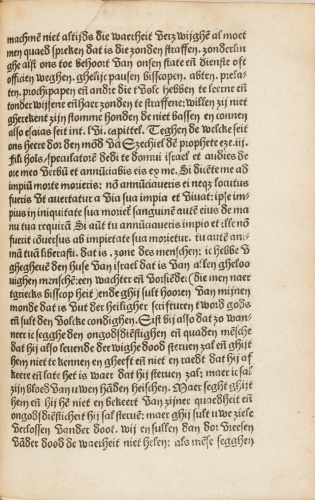 machmẽ niet altijds die waerheit verzwijghẽ al moet
men quaed spreken dat is die zonden straffen. zonderlin
ghe alst ons toe behoort van onsen state eñ dienste oft
officien weghen. ghelijc pausen bisscopen. abten. prela-
ten. prochipapen eñ andie die tvolc hebben te leerne eñ
tonder wijsene eñ haer zonden te straffene; willen zij niet
gherekent zijn stomme honden die niet bassen en connen
also esaias seit int. lvi. capittel. Teghen de welcke seit
ons heere dor den mõd vã Ezechiel dẽ prophete eze.iij.
Fili hois/speculatorẽ dedi te domui israel et audies de
ore meo verbũ et annũciabis eis ex me. Si dicẽte me ad
impiũ morte morieris: nõ annũciaveris ei neqz locutus
fueris ut avertatur a via sua impia et vivat: ipse im-
pius in iniquitate sua moriet̃ sanguinẽ autẽ eius de ma
nu tua requirã Si aũt tu annũciaveris impio et ille nõ
fuerit cõversus ab impietate sua morietur. tu autẽ aĩ-
mã tuã liberasti. dat is. zone des menschen: ic hebbe v
ghegheven den huse van israel dat is van allen gheloo
vighen menschẽ: een wachter eñ voirsiẽde: (die men naer
tgriecks bisscop heit) ende ghij sult hooren van mijnen
monde dat is vut der heiligher scriftueren twoord gods
eñ sult den volcke condighen. Eist bij also dat zo wan-
neer ic segghe den ongodsdiẽstighen eñ quaden mẽsche
dat hij also levende der ewighe dood sterven zal eñ ghijt
hem niet te kennen en gheeft eñ niet en raedt dat hij af
keere eñ late het is waer dat hij sterven zal; maer ic sal
zijn bloed van uwen hãden heischen. Maer seght ghijt
hem eñ hij hẽ niet en bekeert van zijner quaedheit eñ
ongodsdiẽsticheit hij sal stervẽ: maer ghij sult uwe ziele
verlossen vander doot. wij en sullen dan dor vreesen
vãder dood de waerheit niet helen: als mẽse segghen